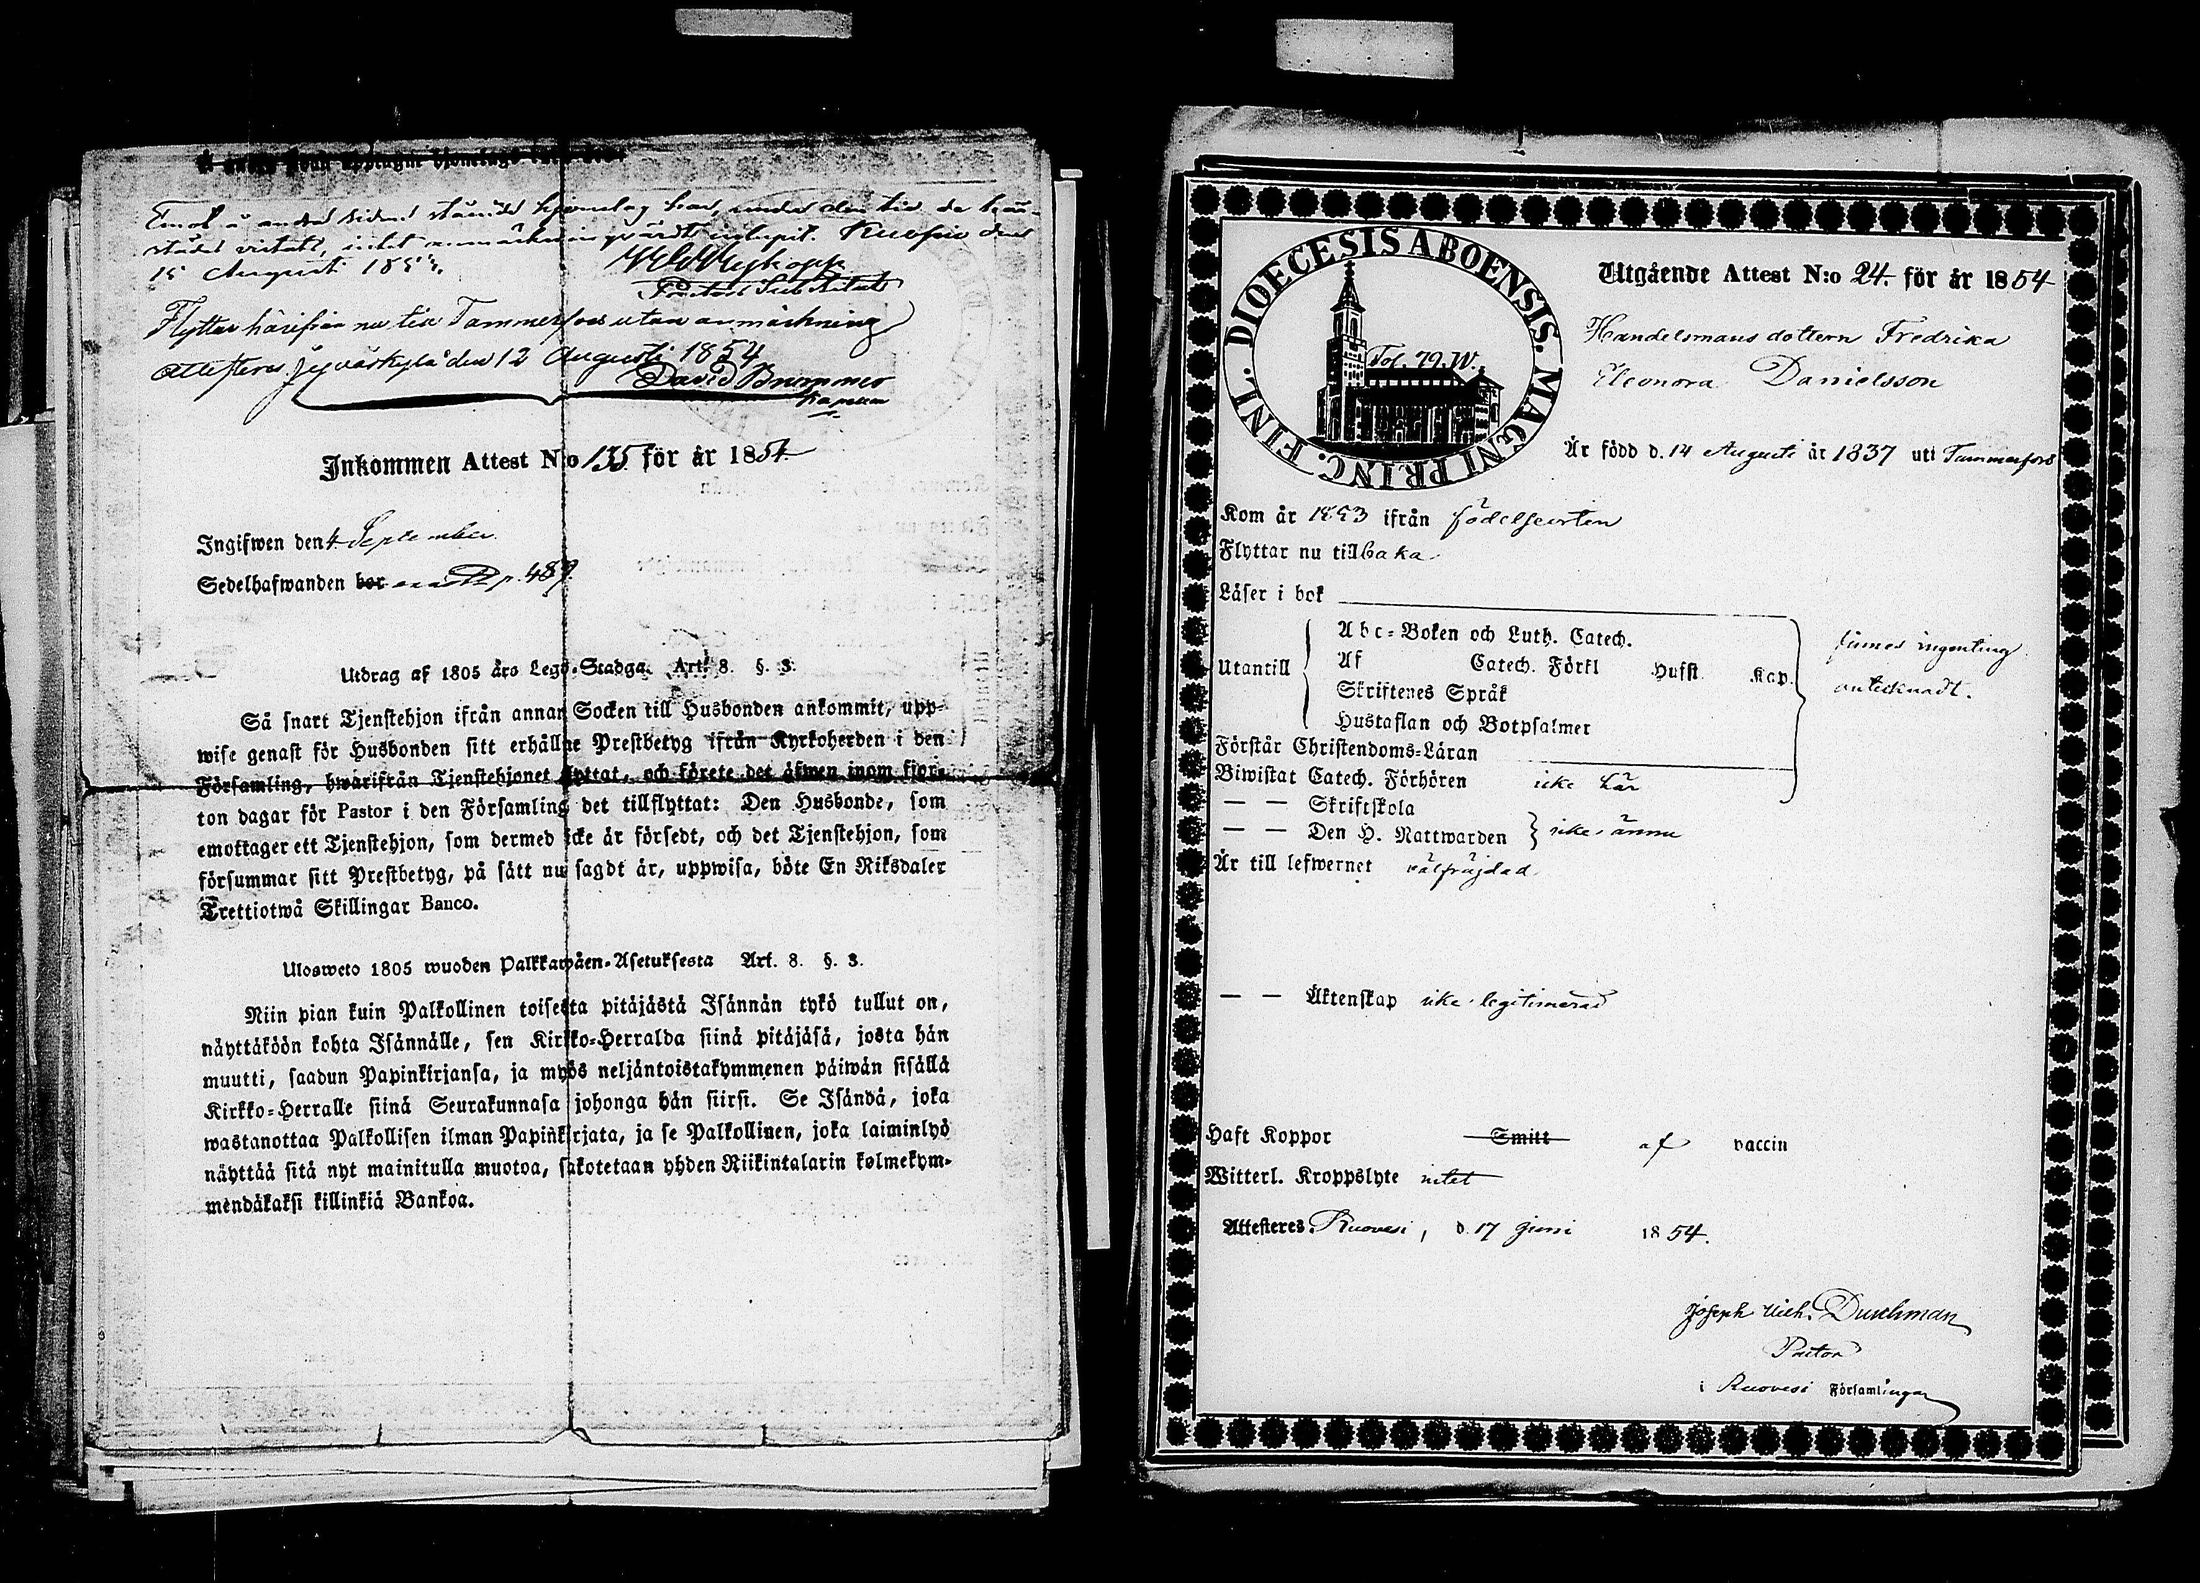 Emot å andra sidan stående hjonelag har, under den tid de här-
städes vistats, intet anmärkningsvärdt inlupit. Kuopio den
15 Augusti 185
Pastors Substitut
Flyttar härifrån nu till Tammerfors utan anmärkning
Attesteras Jyväskylä den 12 Augusti 1854
David Brummer
Kapellan
Inkommen Attest N:o 135 för år 1854
Ingifwen den 4 September
Sedelhafwanden bor p. 489.
Utdrag af 1805 års Lego-Stadga. Art. 8. §. 3.
Så snart Tjenstehjon ifrån annan Socken till Husbonden ankommit, upp-
wise genast för Husbonden sitt erhållne Prestbetyg ifrån Kyrkoherden i den
Församling, hwarifrån Tjenstehjonet flyttat, och förete det äfwen inom fjor-
ton dagar för Pastor i den Församling det tillflyttat: Den Husbonde, som
emottager ett Tjenstehjon, som dermed icke är försedt, och det Tjenstehjon, som
försummar sitt Prestbetyg, på sätt nu sagdt är, uppwisa, böte En Riksdaler
Trettiotwå Skillingar Banco.
Ulosweto 1805 wuoden Palkkawäen-Asetuksesta Art. 8. §. 3.
Niin pian kuin Palkollinen toisesta pitäjästä Isännän tykö tullut on,
näyttäköön kohta Isännälle, sen Kirkko-Herralda siinä pitäjäsä, josta hän
muutti, saadun Papinkirjansa, ja myös neljäntoistakymmenen päiwän sisällä
Kirkko-Herralle siinä Seurakunnasa johonga hän siirsi. Se Isändä, joka
wastanottaa Palkollisen ilman Papinkirjata, ja se Palkollinen, joka laiminlyö
näyttää sitä nyt mainitulla muotoa, sakotetaan yhden Riikintalarin kolmekym-
mendäkaksi killinkiä Bankoa.
DIOECESIS ABOENSIS. MAGNI PRINC. FINL.
Fol. 79. W.
Utgående Attest N:o 24. för år 1854
Handelsmans dottern Fredrika
Eleonora Danielsson
Är född d. 14 Augusti år 1837 uti Tammerfors
Kom år 1853 ifrån födelseorten
Flyttar nu tillbaka
Läser i bok
Utantill
Abc-Boken och Luth. Catech.
Af Catech. Förkl Hufst. Kap.
Skriftenes Språk
Hustaflan och Botpsalmer
finnes ingenting
antecknadt.
Förstår Christendoms-Läran
Biwistat Catech. Förhören icke här
— — Skriftskola
— — Den H. Nattwarden icke ännu
Är till lefwernet välfrägdad
— — Äktenskap icke legitimerad
Haft Koppor Smitt af vaccin
Witterl. Kroppslyte intet
Attesteres. Ruovesi, d. 17 Juni 1854.
Joseph Wilh. Durchman
Pastor
i Ruovesi Församlingar